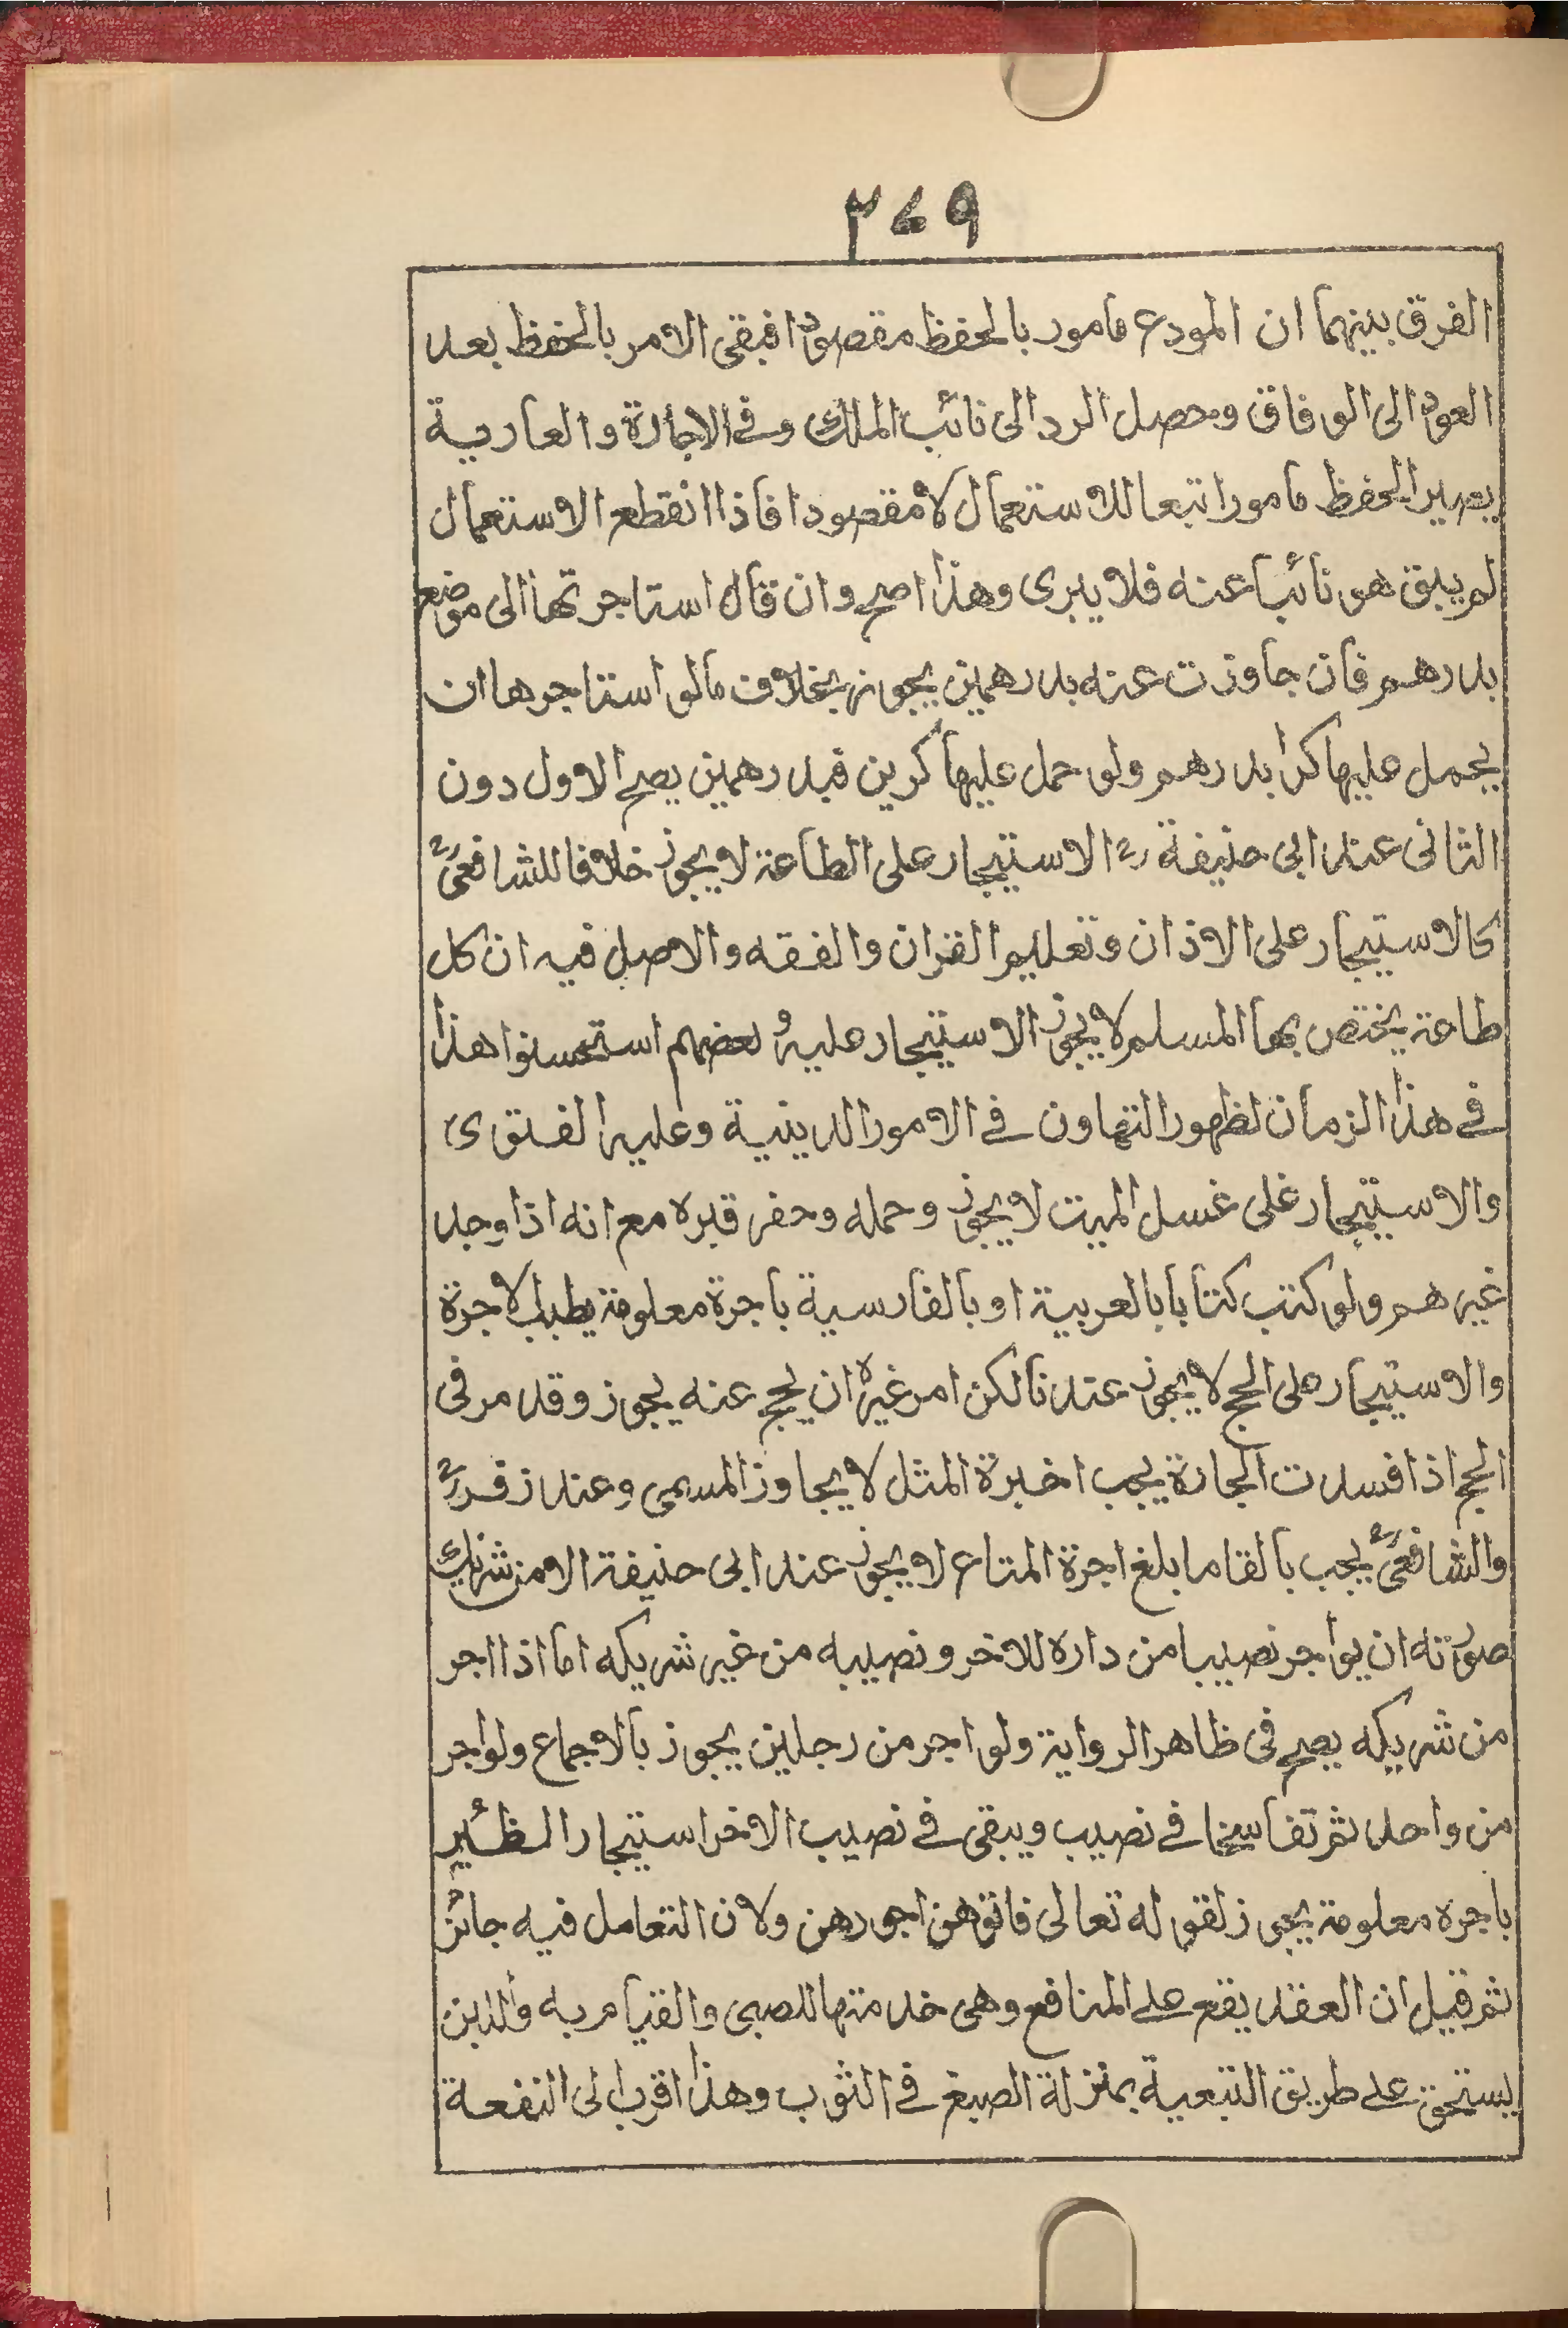 ٢٧٩
الفرق بينهما ان المودع مامور بالحفظ مقصودا فبقى الامر بالحفظ بعد
العود الى الوفاق وحصل الرد الى نائب المالك وفى الاجارة والعارية
يصير الحفظ مامورا تبعا للاستعمال لا مقصودا فاذا انقطع الاستعمال
لم يبق هو نائبا عنه فلا يبرى وهذا اصح وان قال استاجرتها الى موضع
بدرهم فان جاوزت عنه بدرهمين يجوز بخلاف مالو استاجرها ان
يحمل عليها كرا بدرهم ولو حمل عليها كرين فبدرهمين يصح الاول دون
الثانى عند ابى حنيفة رح الاستيجار على الطاعة لا يجوز خلافا للشافعى رح
كالاستيجار على الاذان وتعليم القران والفقه والاصل فيه ان كل
طاعة يختص بها المسلم لا يجوز الاستيجار عليه و بعضهم استحسنوا هذا
فى هذا الزمان لظهور التهاون فى الامور الدينية وعليه الفتوى
والاستيجار على غسل الميت لا يجوز وحمله وحفر قبره مع انه اذا وجد
غيرهم ولو كتب كتابا بالعربية او بالفارسية باجرة معلومة يطيب الاجرة
والاستيجار على الحج لا يجوز عندنا لكن امر غيره ان يحج عنه يجوز وقد مر فى
الحج اذا فسدت الجارة يجب اخبرة المثل لا يجاوز المسمى وعند زفر رح
والشافعى رح يجب بالقا ما بلغ اجرة المتاع لا يجوز عند ابى حنيفة الا من شريك
صورته ان يواجر نصيبا من داره للاخر و نصيبه من غير شريكه اما اذا اجر
من شريكه يصح فى ظاهر الرواية ولو اجر من رجلين يجوز بالاجماع ولو اجر
من واحد ثم تفاسخا فى نصيب ويبقى فى نصيب الاخر استيجار الظئير
باجره معلومة يجوز لقوله تعالى فاتوهن اجورهن ولان التعامل فيه جائز
ثم قيل ان العقد يقع على المنافع وهى خدمتها للصبى والقيام به والذين
يستحق على طريق التبعية بمنزلة الصبغ فى الثوب وهذا اقرب الى النفعة